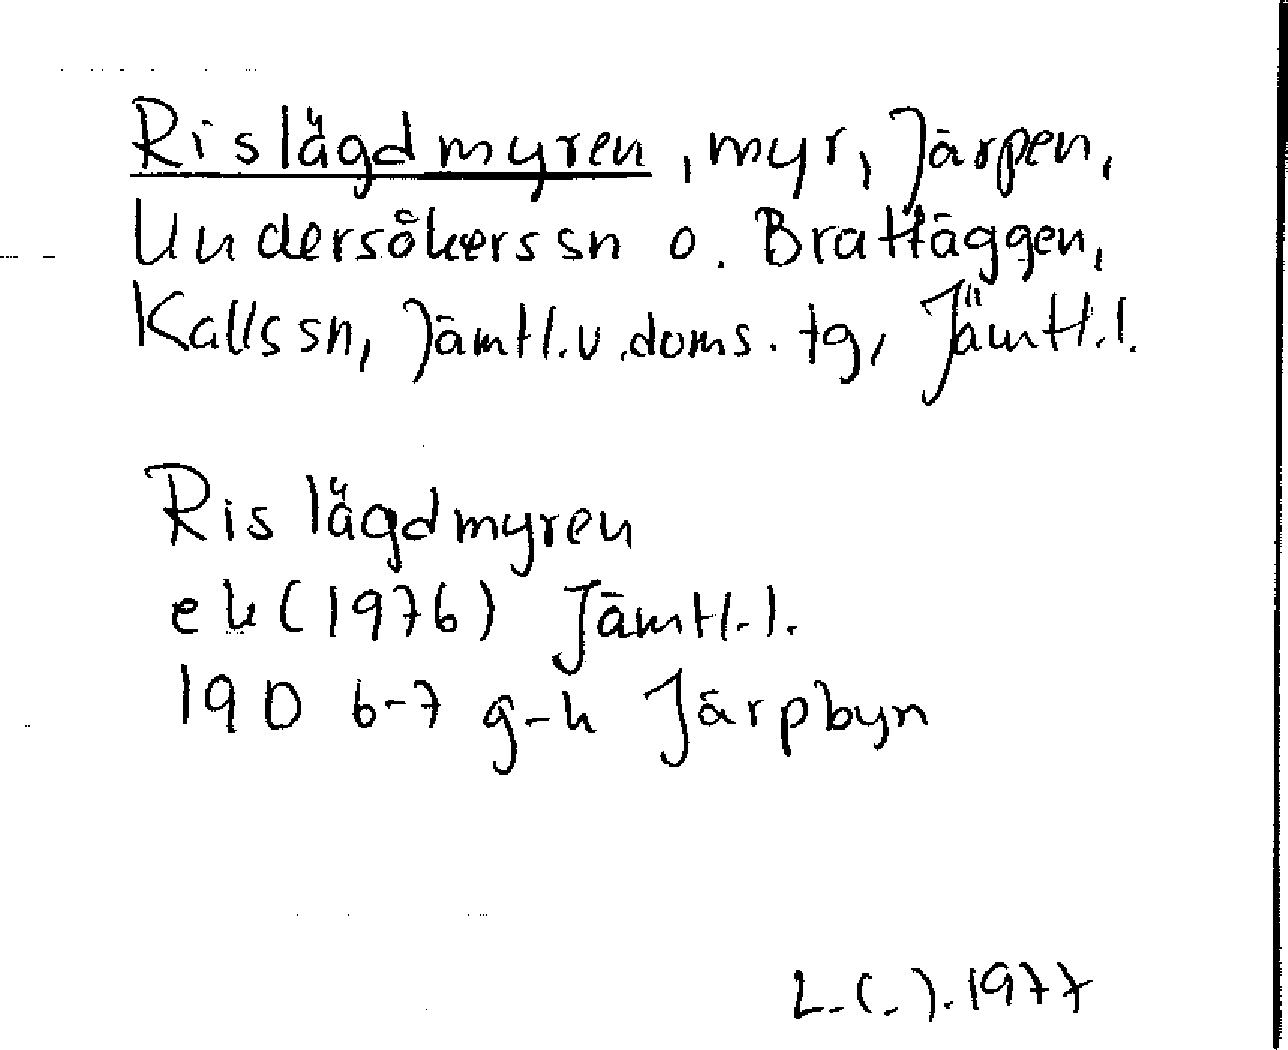 Rislägdmyren, myr, Järpen,
Undersåkers sn o. Brattäggen,
Kalls sn, Jämtl.v.doms. tg, Jämtl.l.
Rislägdmyren
ek (1976) Jämtl.l.
19D 6-7 g-h Järpbyn
L.(.).1977